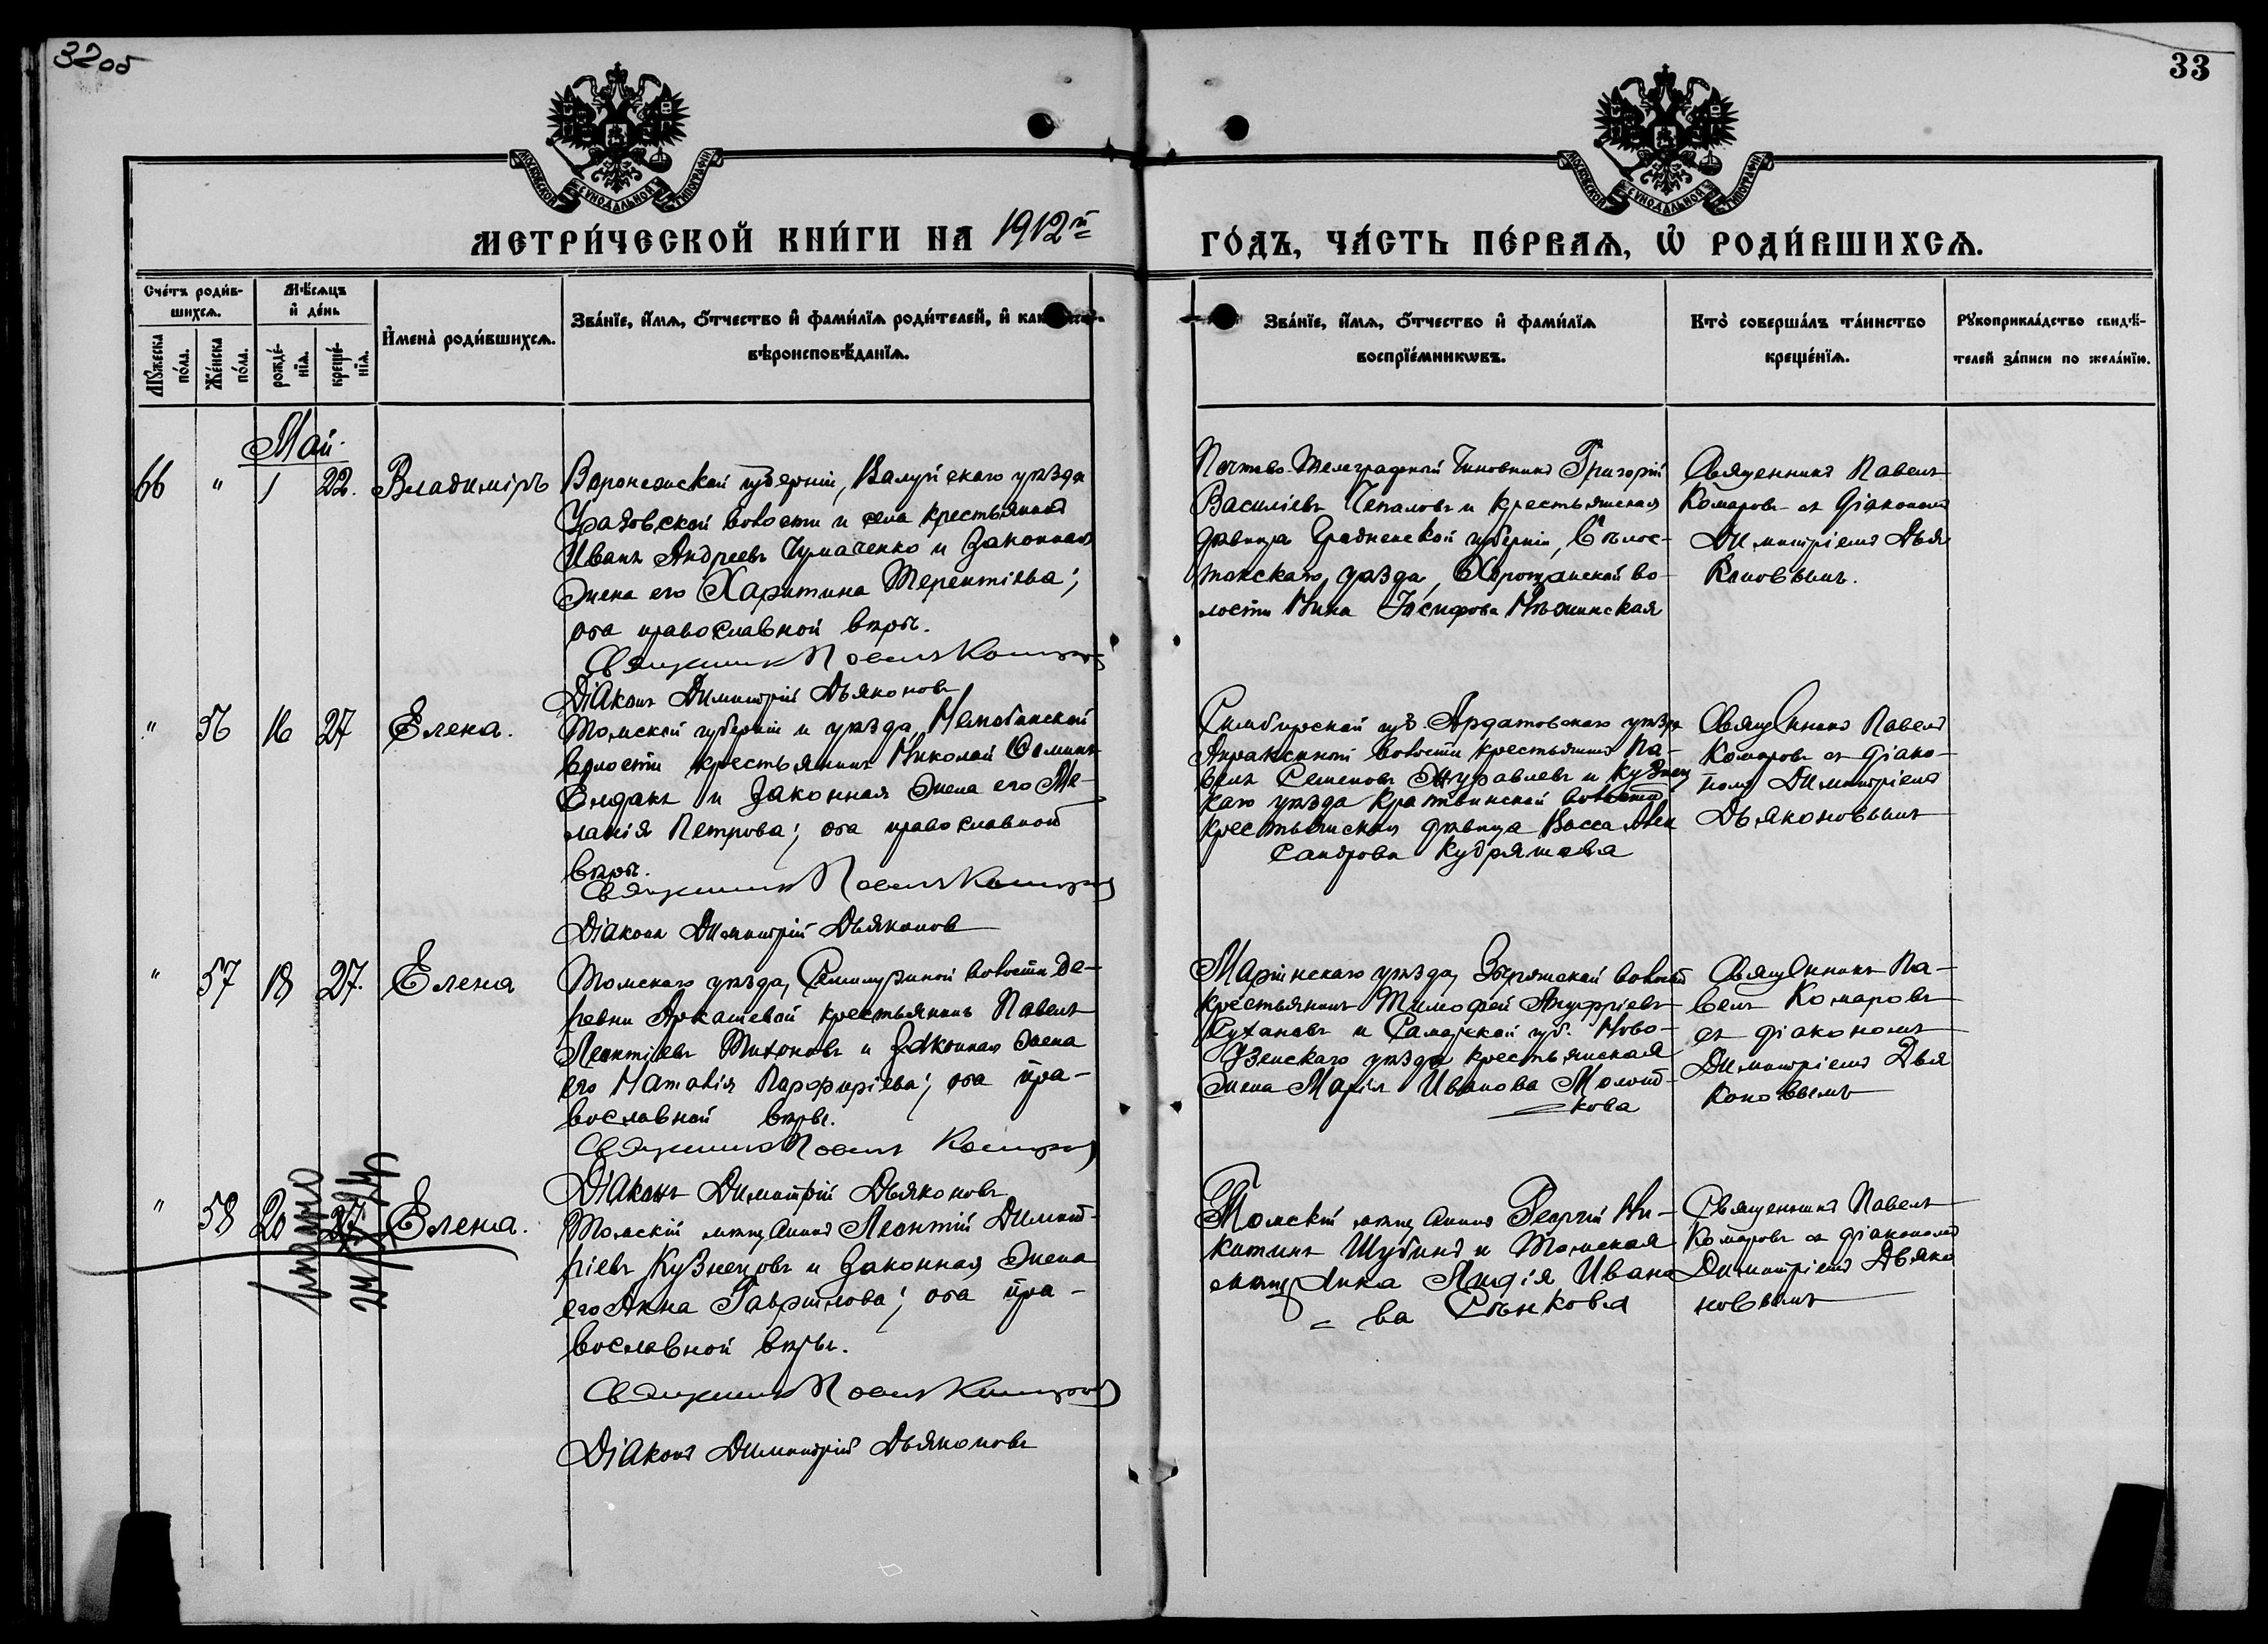 32 об
33
МОСКОВСКОЙ СѴНОДАЛЬНОЙ ТИПОГРАФІИ
МОСКОВСКОЙ СѴНОДАЛЬНОЙ ТИПОГРАФІИ
МЕТРИ́ЧЕСКОЙ КНИ́ГИ НА 1912й
ГО́ДЪ, ЧА́СТЬ ПЕ́РВАѦ, Ѡ РОДИ́ВШИХСѦ.
Сче́тъ роди́в-
шихсѧ.
Мꙋжеска по́ла.
Же́нска по́ла.
Мѣ́сѧцъ
и҆ де́нь
рожде́-нїѧ.
креще́-нїѧ.
И҆мена̀ роди́вшихсѧ.
Зва́нїе, и҆́мѧ, ѻ҆́тчество и҆ фами́лїѧ роди́телей, и҆
вѣроисповѣ́данїѧ.
Зва́нїе, и҆́мѧ, ѻ҆́тчество и҆ фами́лїѧ
воспрїе́мникѡвъ.
Кто̀ соверша́лъ та́инство
креще́нїѧ.
Рꙋкоприкла́дство свидѣ́-
телей за́писи по жела́нїю.
Май.
66 " 1 22. Владиміръ
Воронежской губерніи, Валуйскаго уѣзда
Уразовской волости и села крестьянинъ
Иванъ Андреевъ Чумаченко и законная
жена его Харитина Терентіева;
оба православной вѣры.
Священникъ Павелъ Комаровъ
Діаконъ Димитрій Дьяконовъ
Почтово-Телеграфный Чиновникъ Григорій
Василіевъ Чепаловъ и крестьянская
дѣвица Гродненской губерніи, Бѣлос-
токскаго уѣзда, Хорощанской во-
лости Нина Іосифова
Священникъ Павелъ
Комаровъ съ діакономъ
Димитріемъ Дья
коновымъ.
" 56 16 27 Елена.
Томской губерніи и уѣзда, Нелюбинской
волости крестьянинъ Николай Ѳоминъ
Солдакъ и законная жена его Ме-
ланія Петрова; оба православной
вѣры.
Священникъ Павелъ Комаровъ
Діаконъ Димитрій Дьяконовъ
Симбирской губ. Ардатовскаго уѣзда
Апраксиной волости крестьянинъ Па-
велъ Семеновъ Журавлевъ и Кузнец
каго уѣзда волости
крестьянская дѣвица Васса Алек
сандрова Кудряшева
Священникъ Павелъ
Комаровъ съ діако-
номъ Димитріемъ
Дьяконовымъ
" 57 18 27. Елена
Томскаго уѣзда, Семилужной волости де-
ревни Аркашевой крестьянинъ Павелъ
Леонтіевъ Тихоновъ и законная жена
его Наталія Парфиріева; оба пра-
вославной вѣры.
Священникъ Павелъ Комаровъ
Діаконъ Димитрій Дьяконовъ
Маріинскаго уѣзда, Зырянской волости
крестьянинъ Тимофей Ануфріевъ
Сухановъ и Самарской губ. Ново-
узенскаго уѣзда крестьянская
жена Марія Иванова Молот-
кова
Священникъ Па-
велъ Комаровъ
съ діакономъ
Димитріемъ Дья
коновымъ
" 58 20 27. Елена.
Томскій мѣщанинъ Леонтій Димит-
ріевъ Кузнецовъ и законная жена
его Анна Гаврилова; оба пра-
вославной вѣры.
Священникъ Павелъ Комаровъ
Діаконъ Димитрій Дьяконовъ
Томскій мѣщанинъ Георгій Ни-
китинъ Шубинъ и Томская
мѣщанка Лидія Ивано
= ва Сѣнкова
Священникъ Павелъ
Комаровъ съ діакономъ
Димитріемъ Дьяко
новымъ